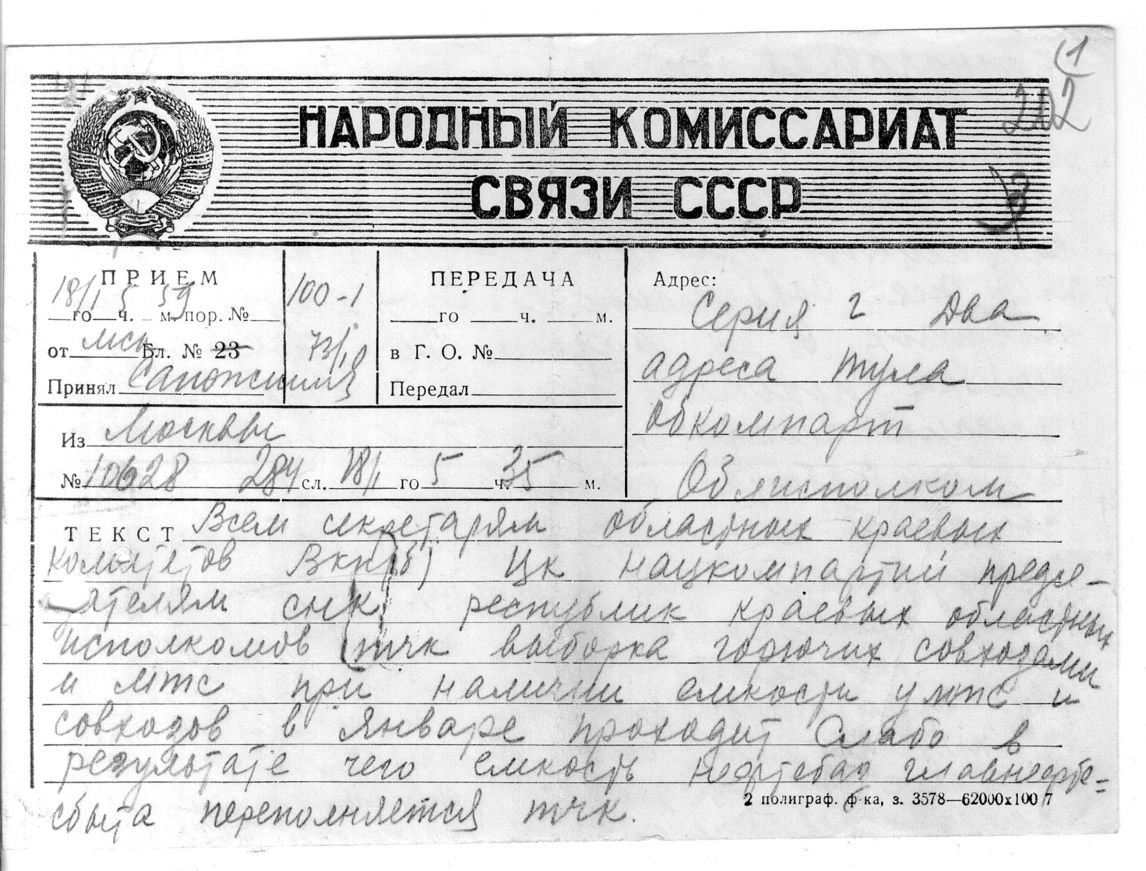 (1
202
НАРОДНЫЙ КОМИССАРИАТ
СВЯЗИ СССР
ПРИЕМ
18/I 5 59 100-1
го ч. м. пор. №
от мск Бл. № 23 73/10
Принял
Из Москвы
№ 10628 284 сл. 18/I го 5 ч. 35 м.
ПЕРЕДАЧА
го ч. м.
в Г. О. №
Передал
Адрес:
Серия г Два
адреса Тула
обкомпарт
Облисполком
ТЕКСТ Всем секретарям областных краевых
комитетов ВКП(б) Цк нацкомпартий предсе-
дателям снк республик краевых областных
исполкомов тчк выборка горючих совхозами
и мтс при наличии емкости у мтс и
совхозов в январе проходит слабо в
результате чего емкость нефтебаз главнефте-
сбыта переполняется тчк.
2 полиграф. ф-ка, з. 3578—62000х100 7